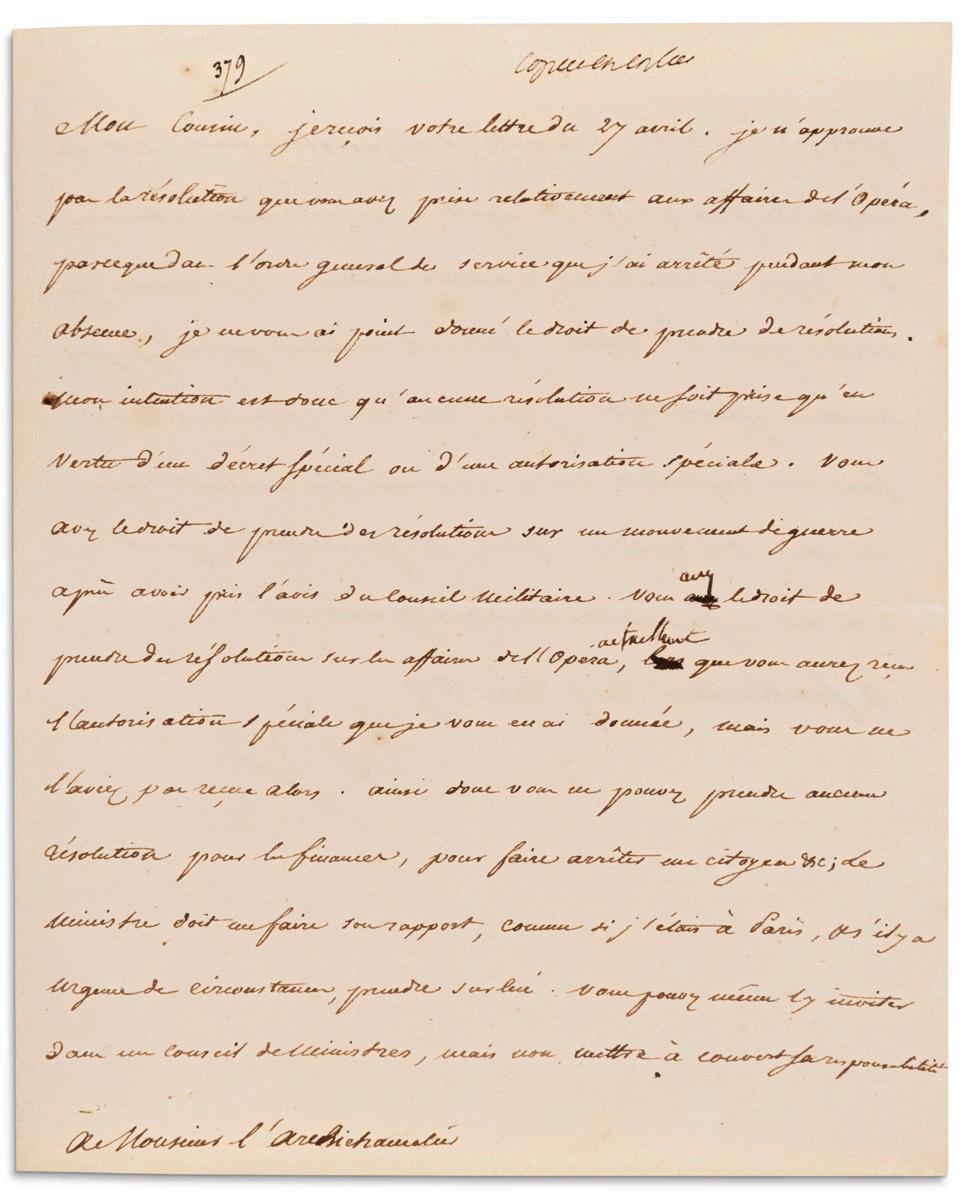 379
Mon Cousin, je reçois votre lettre du 27 avril. je n'approuve
pas la résolution que vous avez prise relativement aux affaires de l'Opéra,
parceque dans l'ordre general de service que j'ai arrêté pendant mon
absence, je ne vous ai point donné le droit de prendre de résolutions.
Mon intention est donc qu'aucune résolution ne soit prise qu'en
vertu d'un décret spécial ou d'une autorisation spéciale. Vous
avez le droit de prendre des résolutions sur un mouvement de guerre
après avoir pris l'avis du Conseil Militaire. Vous avez le droit de
prendre des résolutions sur les affaires de l'Opéra, actuellement que vous aurez reçu
l'autorisation spéciale que je vous en ai donnée, mais vous ne
l'aviez pas reçue alors. ainsi donc vous ne pouvez prendre aucune
résolution pour les finances, pour faire arrêter un citoyen &c; Le
Ministre doit me faire son rapport, comme si j'étais à Paris, & s'il y a
urgence de circonstances, prendre sur lui. Vous pouvez même l'y inviter
dans un Conseil de Ministres, mais non mettre à couvert sa responsabilité
à Monsieur l'Archichancelier